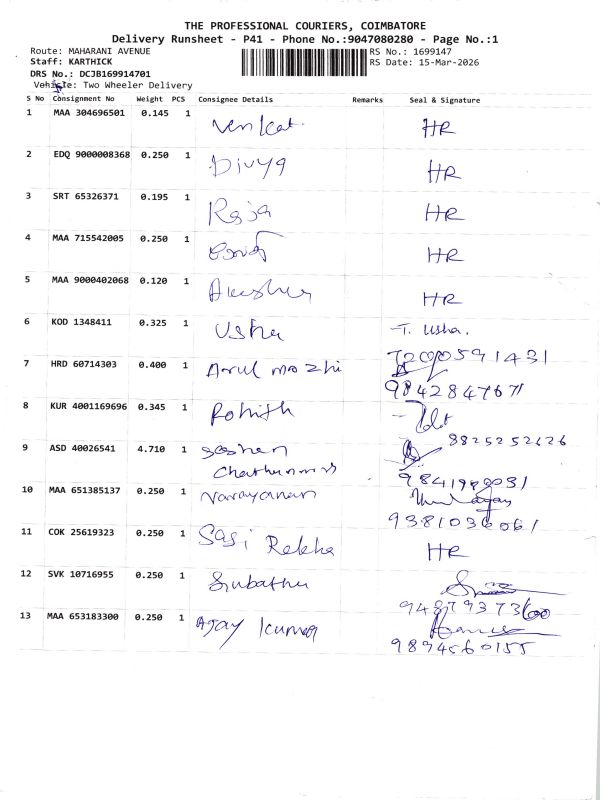 THE PROFESSIONAL COURIERS, COIMBATORE
Delivery Runsheet - P41 - Phone No.:9047080280 - Page No.:1
Route: MAHARANI AVENUE RS No.: 1699147
Staff: KARTHICK RS Date: 15-Mar-2026
DRS No.: DCJB169914701
Vehicle: Two Wheeler Delivery
S No Consignment No Weight PCS Consignee Details Remarks Seal & Signature
1 MAA 304696501 0.145 1 Venkat HR
2 EDQ 9000008368 0.250 1 Divya HR
3 SRT 65326371 0.195 1 Raja HR
4 MAA 715542005 0.250 1 HR
5 MAA 9000402068 0.120 1 HR
6 KOD 1348411 0.325 1 Usha T. Usha.
7200591431
7 HRD 60714303 0.400 1 Arul mozhi
9842847671
8 KUR 4001169696 0.345 1 Rohith
8825252626
9 ASD 40026541 4.710 1
10 MAA 651385137 0.250 1 Narayanan
9381036061
11 COK 25619323 0.250 1 Sasi Rekha HR
12 SVK 10716955 0.250 1
13 MAA 653183300 0.250 1 Ajay Kumar
9894560155